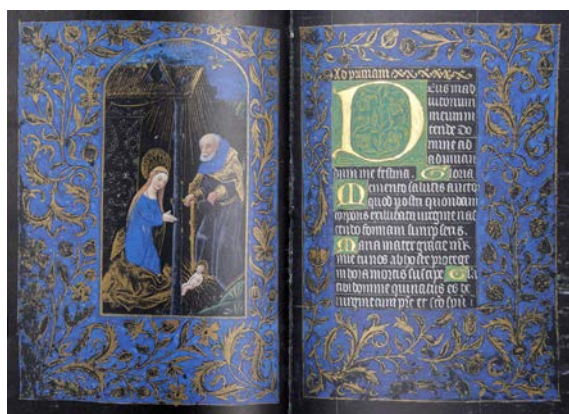 Ad primam
Deus in ad
iutorium
meum in
tende Do
mine ad
adiuuan
dum me festina. Gloria
Memento salutis auctor
quod nostri quondam
corporis ex illibata uirgine nas
cendo formam sumpseris.
Maria mater gratie
tu nos ab hoste protege
in hora mortis suscipe Glo
tibi domine qui natus es de
uirgine cum pre et sco spu i